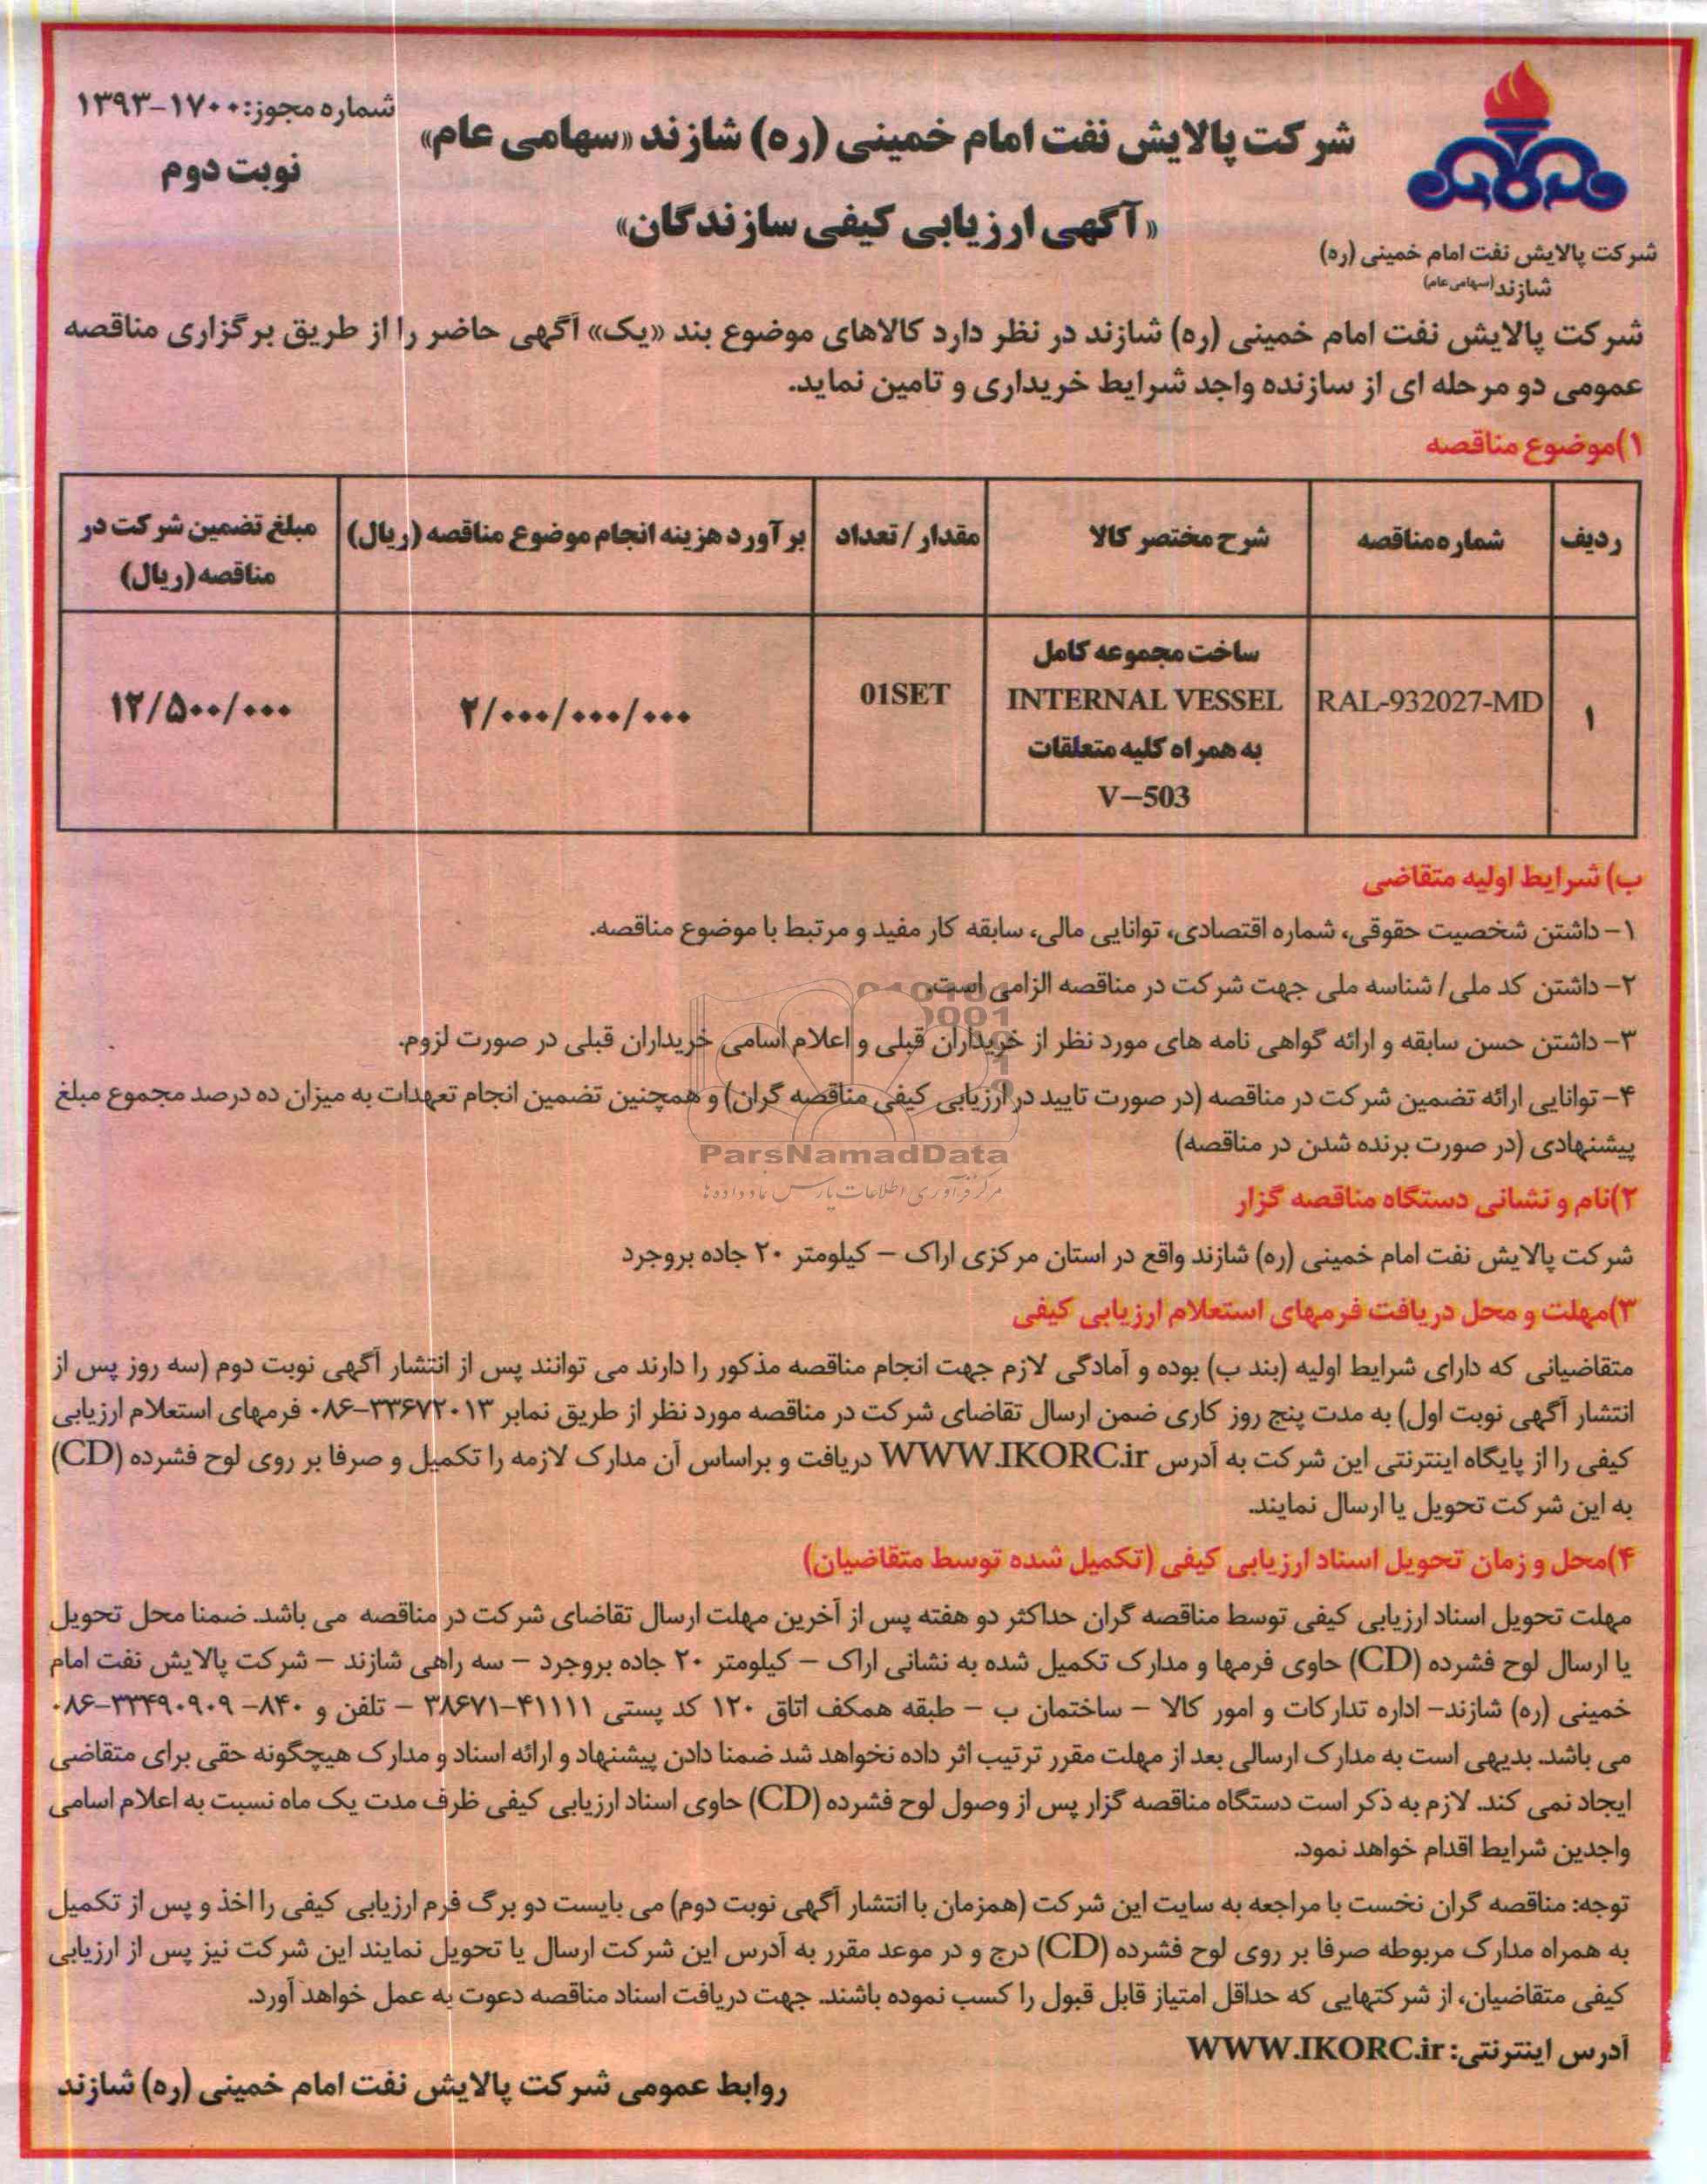 شماره مجوز: ۱۷۰۰-۱۳۹۳
نوبت دوم
شرکت پالایش نفت امام خمینی (ره) شازند «سهامی عام»
«آگهی ارزیابی کیفی سازندگان»
شرکت پالایش نفت امام خمینی (ره)
شازند (سهامی عام)
شرکت پالایش نفت امام خمینی (ره) شازند در نظر دارد کالاهای موضوع بند «یک» آگهی حاضر را از طریق برگزاری مناقصه
عمومی دو مرحله ای از سازنده واجد شرایط خریداری و تامین نماید.
۱)موضوع مناقصه
ردیف | شماره مناقصه | شرح مختصر کالا | مقدار / تعداد | برآورد هزینه انجام موضوع مناقصه (ریال) | مبلغ تضمین شرکت در مناقصه (ریال)
۱ | RAL-932027-MD | ساخت مجموعه کامل
INTERNAL VESSEL
به همراه کلیه متعلقات
V-503 | 01SET | ۲/۰۰۰/۰۰۰/۰۰۰ | ۱۲/۵۰۰/۰۰۰
ب) شرایط اولیه متقاضی
۱- داشتن شخصیت حقوقی، شماره اقتصادی، توانایی مالی، سابقه کار مفید و مرتبط با موضوع مناقصه.
۲- داشتن کد ملی/ شناسه ملی جهت شرکت در مناقصه الزامی است.
۳- داشتن حسن سابقه و ارائه گواهی نامه های مورد نظر از خریداران قبلی و اعلام اسامی خریداران قبلی در صورت لزوم.
۴- توانایی ارائه تضمین شرکت در مناقصه (در صورت تایید در ارزیابی کیفی مناقصه گران) و همچنین تضمین انجام تعهدات به میزان ده درصد مجموع مبلغ
پیشنهادی (در صورت برنده شدن در مناقصه)
ParsNamadData
مرکز فرآوری اطلاعات پارس نماد داده ها
۲)نام و نشانی دستگاه مناقصه گزار
شرکت پالایش نفت امام خمینی (ره) شازند واقع در استان مرکزی اراک – کیلومتر ۲۰ جاده بروجرد
۳)مهلت و محل دریافت فرمهای استعلام ارزیابی کیفی
متقاضیانی که دارای شرایط اولیه (بند ب) بوده و آمادگی لازم جهت انجام مناقصه مذکور را دارند می توانند پس از انتشار آگهی نوبت دوم (سه روز پس از
انتشار آگهی نوبت اول) به مدت پنج روز کاری ضمن ارسال تقاضای شرکت در مناقصه مورد نظر از طریق نمابر ۳۳۶۷۲۰۱۳-۰۸۶ فرمهای استعلام ارزیابی
کیفی را از پایگاه اینترنتی این شرکت به آدرس WWW.IKORC.ir دریافت و براساس آن مدارک لازمه را تکمیل و صرفا بر روی لوح فشرده (CD)
به این شرکت تحویل یا ارسال نمایند.
۴)محل و زمان تحویل اسناد ارزیابی کیفی (تکمیل شده توسط متقاضیان)
مهلت تحویل اسناد ارزیابی کیفی توسط مناقصه گران حداکثر دو هفته پس از آخرین مهلت ارسال تقاضای شرکت در مناقصه می باشد. ضمنا محل تحویل
یا ارسال لوح فشرده (CD) حاوی فرمها و مدارک تکمیل شده به نشانی اراک – کیلومتر ۲۰ جاده بروجرد – سه راهی شازند – شرکت پالایش نفت امام
خمینی (ره) شازند- اداره تدارکات و امور کالا – ساختمان ب – طبقه همکف اتاق ۱۲۰ کد پستی ۴۱۱۱۱-۳۸۶۷۱ – تلفن و ۸۴۰- ۳۳۴۹۰۹۰۹-۰۸۶
می باشد. بدیهی است به مدارک ارسالی بعد از مهلت مقرر ترتیب اثر داده نخواهد شد ضمنا دادن پیشنهاد و ارائه اسناد و مدارک هیچگونه حقی برای متقاضی
ایجاد نمی کند. لازم به ذکر است دستگاه مناقصه گزار پس از وصول لوح فشرده (CD) حاوی اسناد ارزیابی کیفی ظرف مدت یک ماه نسبت به اعلام اسامی
واجدین شرایط اقدام خواهد نمود.
توجه: مناقصه گران نخست با مراجعه به سایت این شرکت (همزمان با انتشار آگهی نوبت دوم) می بایست دو برگ فرم ارزیابی کیفی را اخذ و پس از تکمیل
به همراه مدارک مربوطه صرفا بر روی لوح فشرده (CD) درج و در موعد مقرر به آدرس این شرکت ارسال یا تحویل نمایند این شرکت نیز پس از ارزیابی
کیفی متقاضیان، از شرکتهایی که حداقل امتیاز قابل قبول را کسب نموده باشند. جهت دریافت اسناد مناقصه دعوت به عمل خواهد آورد.
آدرس اینترنتی: WWW.IKORC.ir
روابط عمومی شرکت پالایش نفت امام خمینی (ره) شازند